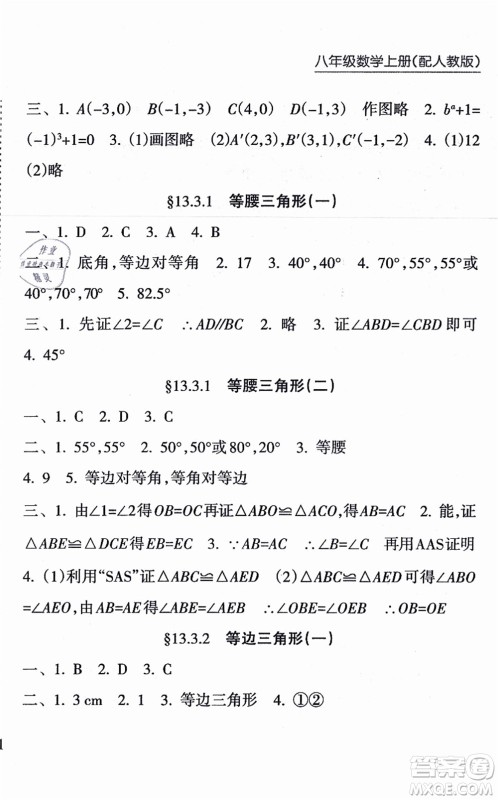 八年级数学上册(配人教版)
三、1. A(-3,0) B(-3,-3) D(0,0) 作图略 2. bᵃ+1=
(-1)³+1=0 3. (1)画图略 (2)A′(2,3),B′(3,1) 4. (1)12
(2)略
§13.3.1 等腰三角形(一)
一、1. D 2. A 3. A 4. B
二、1. 底角,等边对等角 2. 17 3. 40°,40° 4. 55°,55°或
40°,70° 5. 82.5°
三、1. 先证∠2=∠C ∴AD//BC 2. 略 3. 证∠ABD=∠CBD即可
4. 45°
§13.3.1 等腰三角形(二)
一、1. C 2. D 3. C
二、1. 55°,55° 2. 50°或80° 3. 等腰
4. 9 5. 等边对等角,等角对等边
三、1. 由∠1=∠2得OB=OC再证△ABO≌△ACO得AB=AC 2. 能,证
△ABE≌△DCE得BE=CE 3. ∵AB=AC 再用AAS证明
4. (1)利用“SAS”证△ABC≌△AED (2)△ABC≌△AED可得∠ABO
=∠AEO,由AB=AE得∠ABE=∠AEB ∴∠OBE=∠OEB ∴OB=OE
§13.3.2 等边三角形(一)
一、1. B 2. D 3. B
二、1. 3 cm 2. 等边 3. 等边三角形 4. ①②
作业
精灵